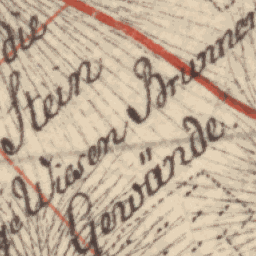 die
Stein
Brunnen
ge Wiesen
Gewände.